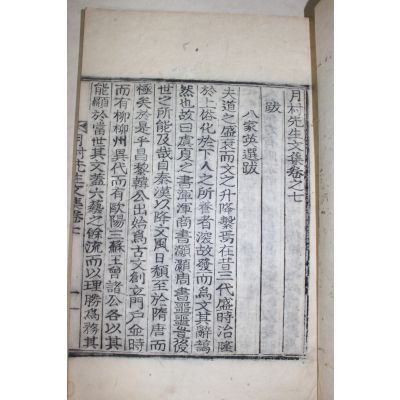 月村先生文集卷之七
跋
八家英選跋
夫道之盛衰而文之升降繫焉在昔三代盛時治隆
於上俗化於下人之所養者深故發而爲文其辭譪
然也故曰虞夏之書渾渾商書灝灝周書噩噩豈後
世之所能及哉自秦漢以降文風日頹至於隋唐而
極矣於是乎昌黎韓公出始爲古文創立門戶並時
而有柳柳州異代而有歐陽三蘇王曾諸公各以其
能顯於當世其文蓋六藝之餘流而以理勝爲務其
月村先生文集卷七
一